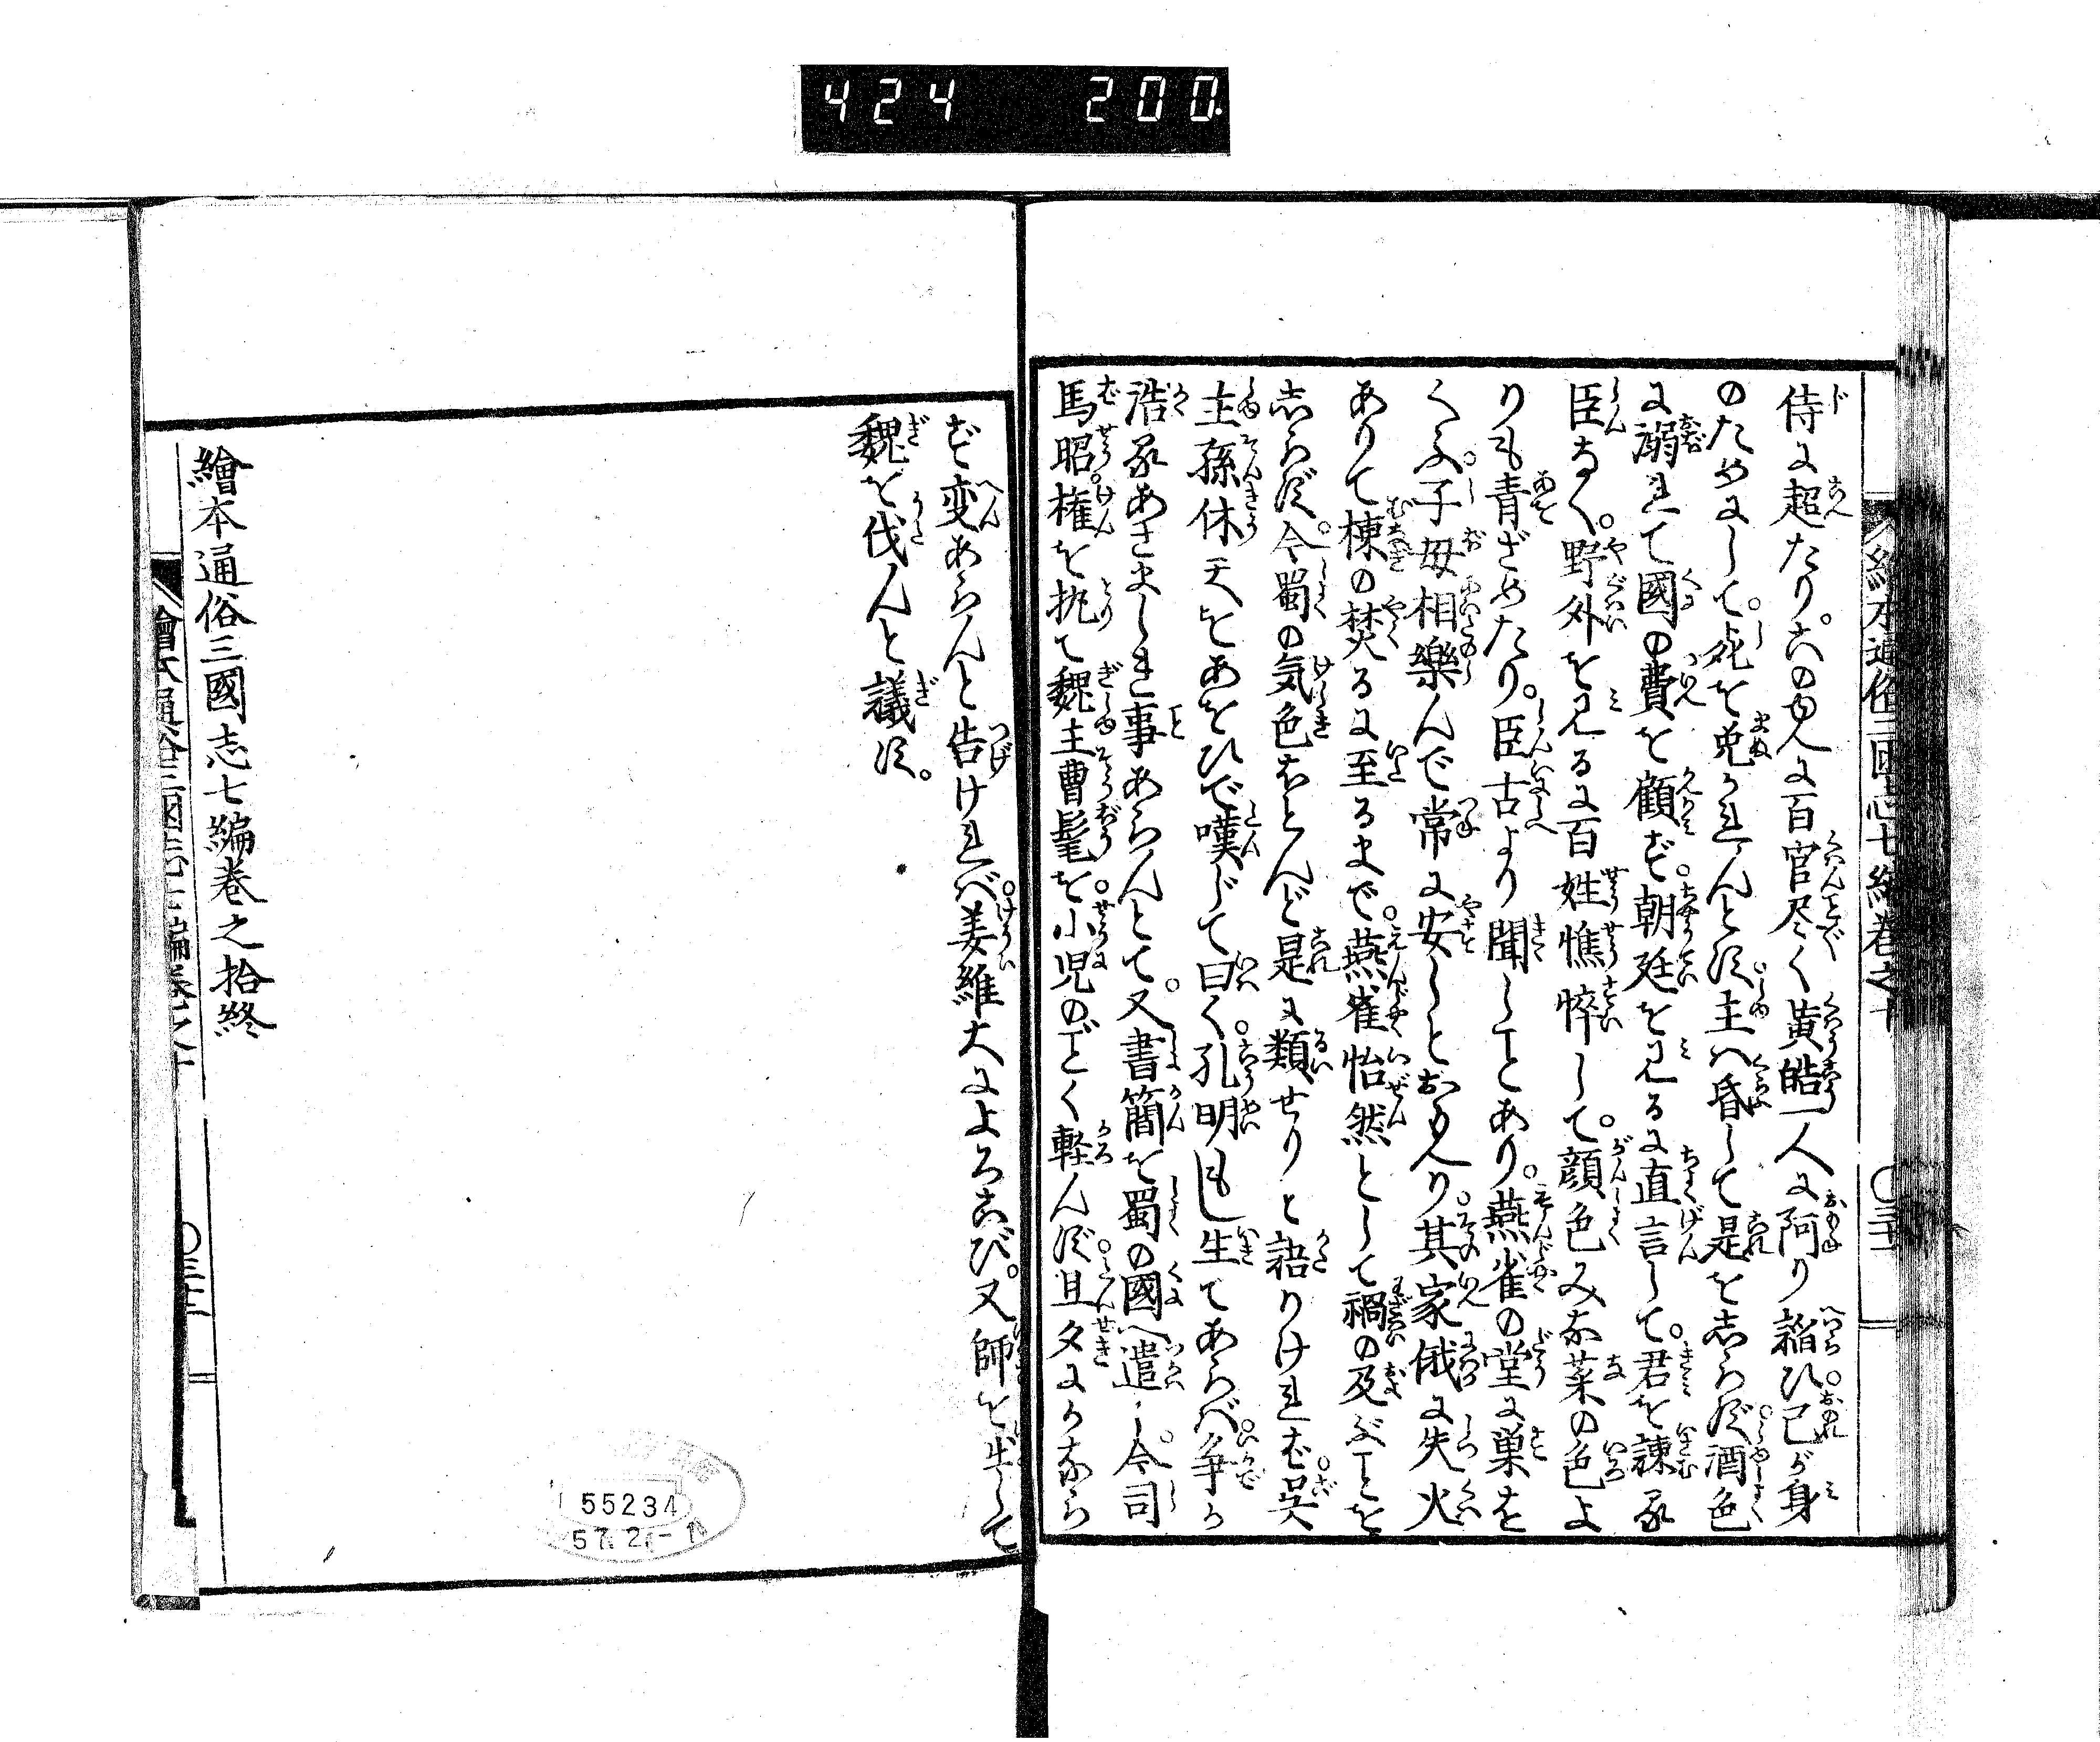 424 200.
繪本通俗三國志七編巻之十 〇三十一
侍に超たり。この由へに百官尽く黄皓一人に阿り謟ひ己が身
のためにして。死を免かれんとす主ハ昏して是をしらず酒色
に溺れて國の費を顧ず。朝廷を見るに直言して。君を諫る
臣なく。野外を見るに百姓憔悴して。顔色みな菜の色よ
りも青ざめたり。臣古より聞しことあり。燕雀の堂に巣を
くふ。子母相樂んで常に安しとおもへり。其家俄に失火
ありて棟の焚るに至るまで。燕雀怡然として禍の及ぶことを
しらず。今蜀の気色ほとんど是に類せりと語りければ。呉
主孫休天をあをひで嘆じて曰く。孔明もし生てあらバ。争か
浩るあさましき事あらんとて。又書簡を蜀の國へ遣し。今司
馬昭。権を執て魏主曹髦を。小児のごとく軽んず。且夕にかなら
ず変あらんと告けれバ。姜維大によろこび。又師を出して
魏を伐んと議す。
繪本通俗三國志七編巻之拾終
繪本通俗三國志七編巻之十 〇三十二
55234
57.2.